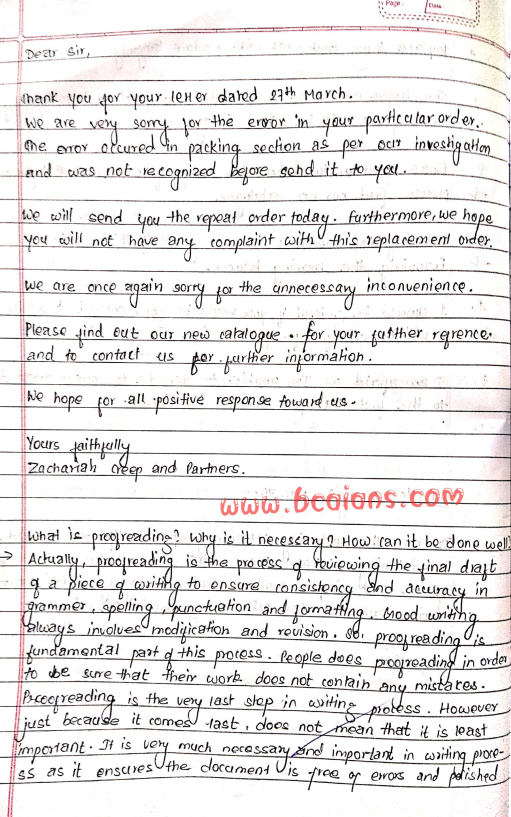 Page:
Date:
Dear Sir,
Thank you for your letter dated 27th March.
We are very sorry for the error in your particular order.
The error occured in packing section as per our investigation
and was not recognized before send it to you.
We will send you the repeat order today. Furthermore, we hope
you will not have any complaint with this replacement order.
We are once again sorry for the unnecessary inconvenience.
Please find out our new catalogue. for your further refrence.
and to contact us for further information.
We hope for all positive response toward us.
Yours faithfully
Zachariah Creep and Partners.
www.bcaians.com
What is proofreading? Why is it necessary? How can it be done well?
→ Actually, proofreading is the process of reviewing the final draft
of a piece of writing to ensure consistency and accuracy in
grammer, spelling, punctuation and formatting. Good writing
always involves modification and revision. So, proofreading is
fundamental part of this process. People does proofreading in order
to be sure that their work does not contain any mistakes.
Proofreading is the very last step in writing process. However
just because it comes last, does not mean that it is least
important. It is very much necessary and important in writing proce-
ss as it ensures the document is free of errors and polished